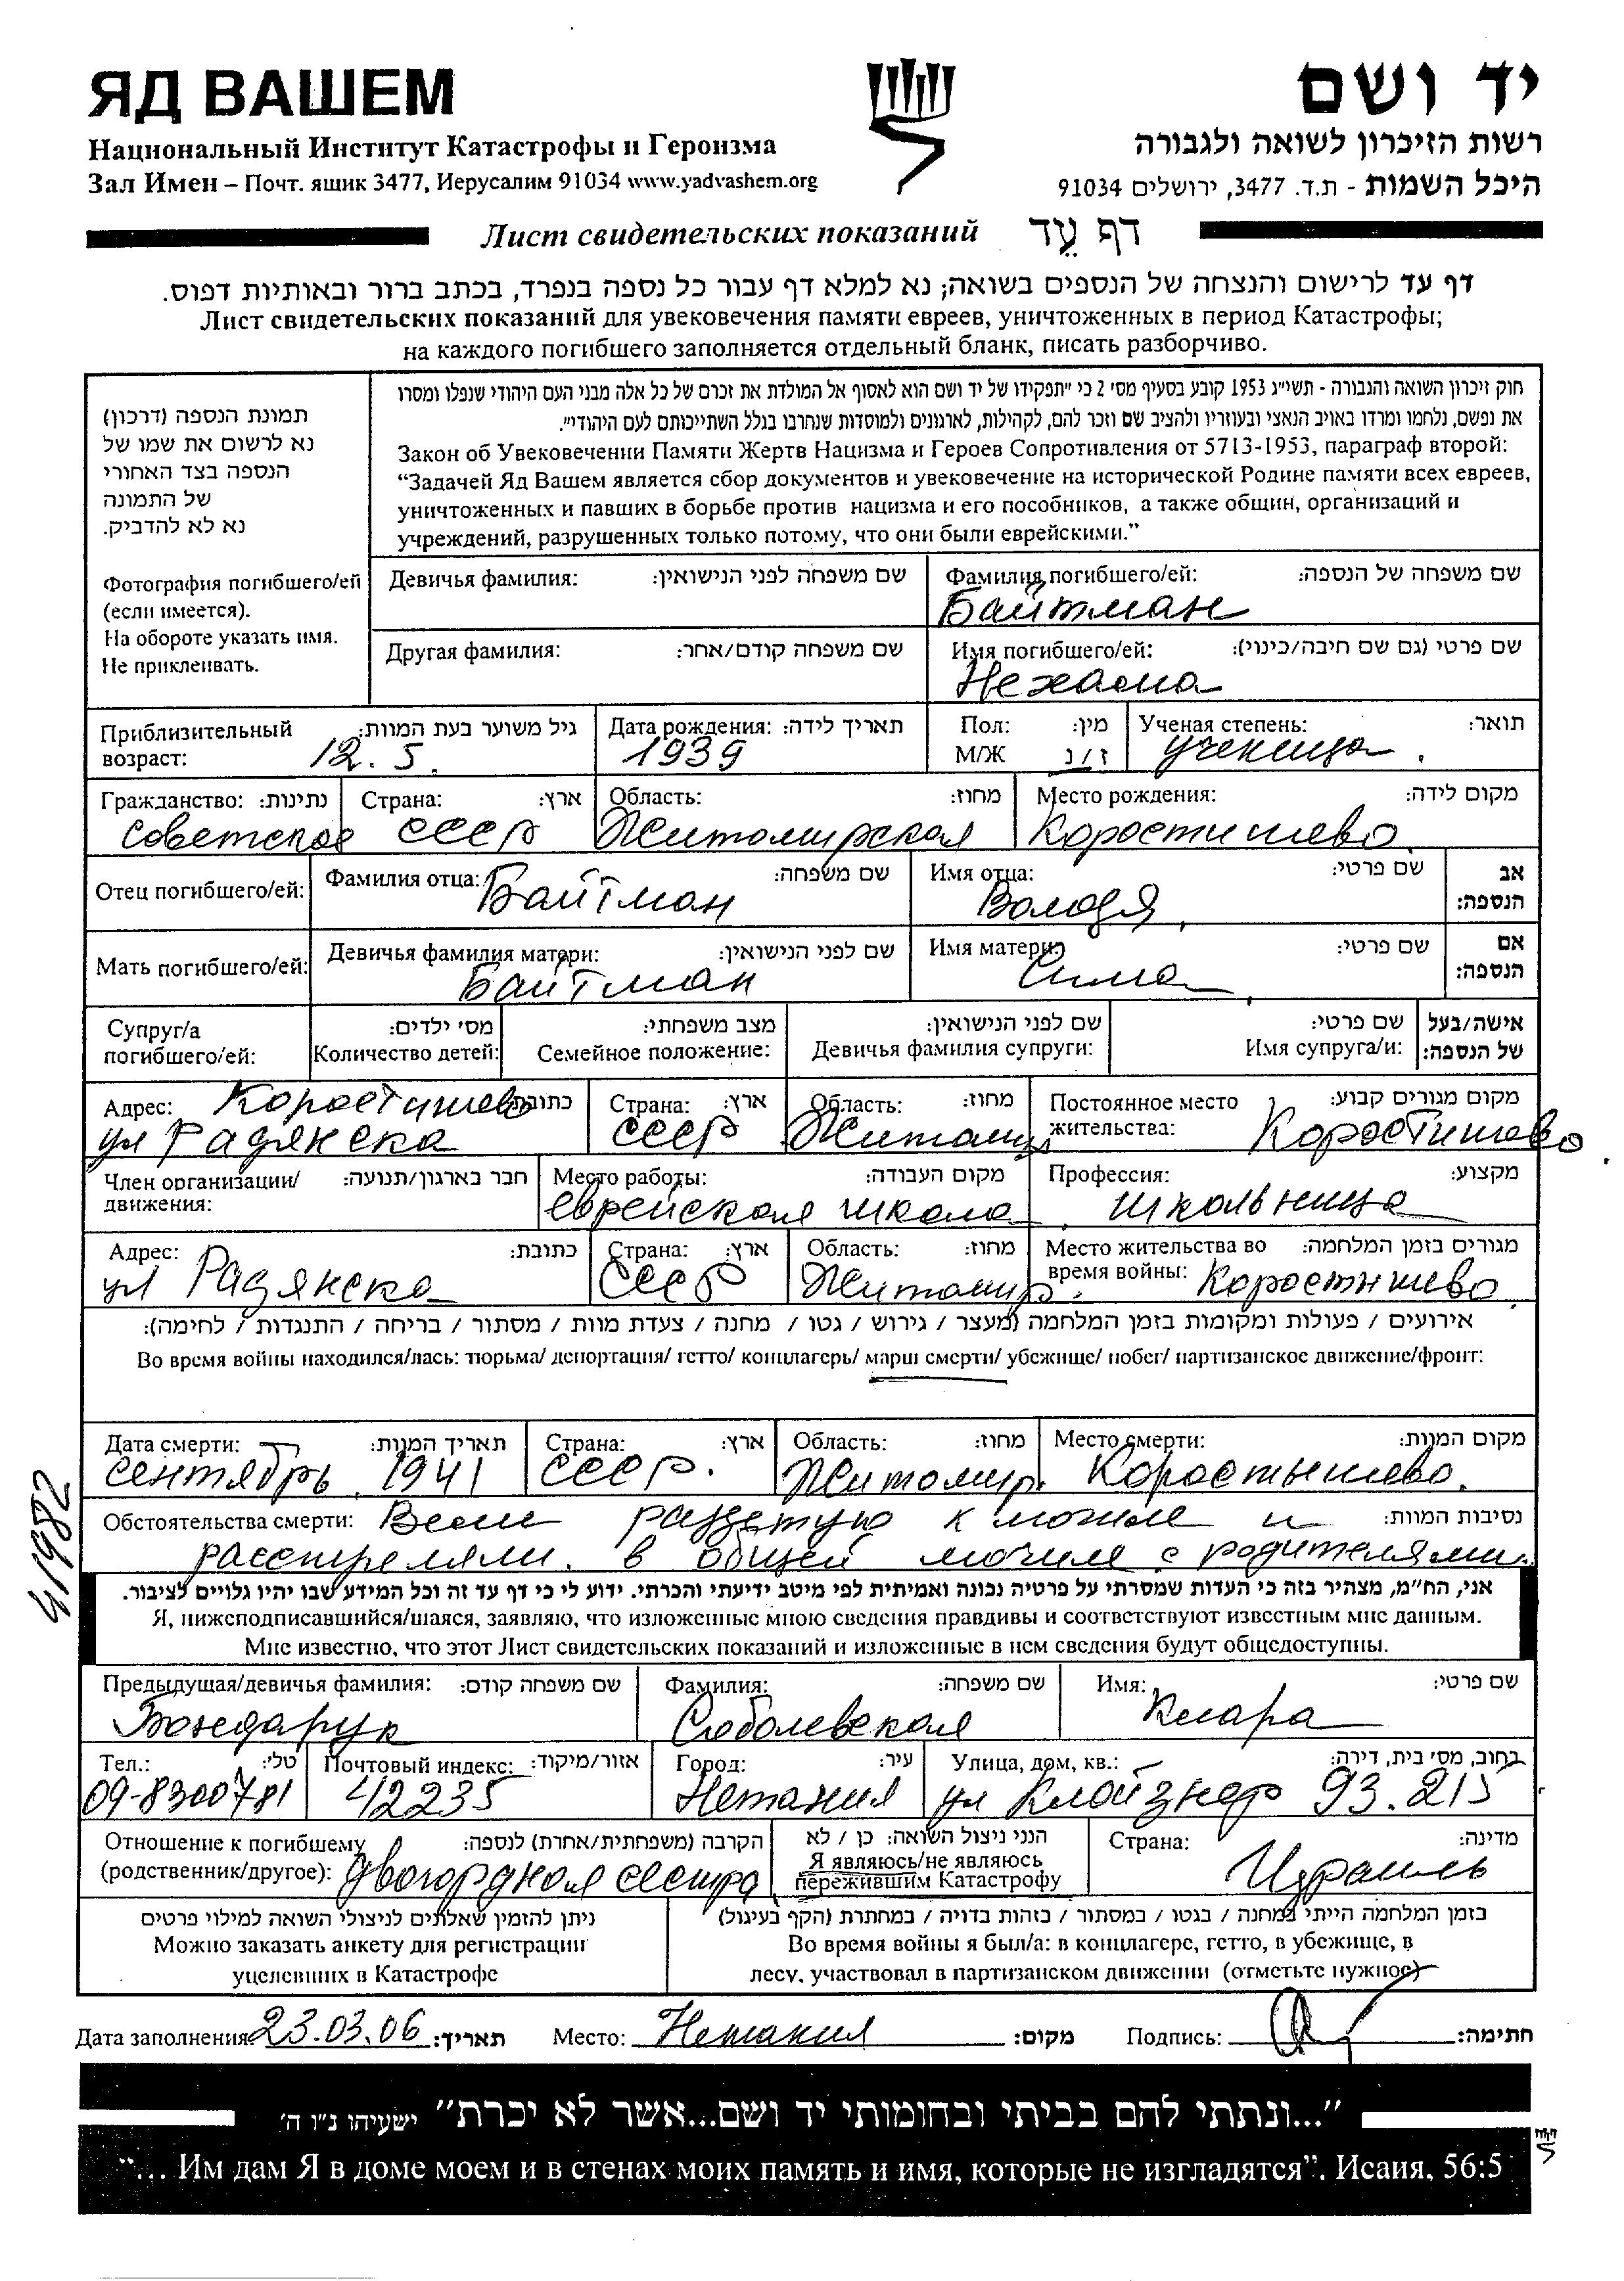 ЯД ВАШЕМ
יד ושם
Национальный Институт Катастрофы и Героизма
רשות הזיכרון לשואה ולגבורה
Зал Имен – Почт. ящик 3477, Иерусалим 91034 www.yadvashem.org
היכל השמות - ת.ד. 3477, ירושלים 91034
Лист свидетельских показаний דף עֵד
דף עד לרישום והנצחה של הנספים בשואה; נא למלא דף עבור כל נספה בנפרד, בכתב ברור ובאותיות דפוס.
Лист свидетельских показаний для увековечения памяти евреев, уничтоженных в период Катастрофы;
на каждого погибшего заполняется отдельный бланк, писать разборчиво.
תמונת הנספה (דרכון)
נא לרשום את שמו של
הנספה בצד האחורי
של התמונה
נא לא להדביק.
Фотография погибшего/ей
(если имеется).
На обороте указать имя.
Не приклеивать.
חוק זיכרון השואה והגבורה - תשי״ג 1953 קובע בסעיף מס׳ 2 כי ״תפקידו של יד ושם הוא לאסוף אל המולדת את זכרם של כל אלה מבני העם היהודי שנפלו ומסרו
את נפשם, נלחמו ומרדו באויב הנאצי ובעוזריו ולהציב שם וזכר להם, לקהילות, לארגונים ולמוסדות שנחרבו בגלל השתייכותם לעם היהודי״.
Закон об Увековечении Памяти Жертв Нацизма и Героев Сопротивления от 5713-1953, параграф второй:
“Задачей Яд Вашем является сбор документов и увековечение на исторической Родине памяти всех евреев,
уничтоженных и павших в борьбе против нацизма и его пособников, а также общин, организаций и
учреждений, разрушенных только потому, что они были еврейскими.”
Девичья фамилия: שם משפחה לפני הנישואין: Фамилия погибшего/ей: שם משפחה של הנספה:
Байтман
Другая фамилия: שם משפחה קודם/אחר: Имя погибшего/ей: שם פרטי (גם שם חיבה/כינוי):
Нехама
Приблизительный возраст: גיל משוער בעת המוות: Дата рождения: תאריך לידה: Пол: מין: Ученая степень: תואר:
12.5. 1939 М/Ж ז / נ ученица.
Гражданство: נתינות: Страна: ארץ: Область: מחוז: Место рождения: מקום לידה:
Советское СССР Житомирская Коростишево.
Отец погибшего/ей: Фамилия отца: שם משפחה: Имя отца: שם פרטי: אב הנספה:
Байтман Володя.
Мать погибшего/ей: Девичья фамилия матери: שם לפני הנישואין: Имя матери: שם פרטי: אם הנספה:
Байтман Сима
Супруг/а погибшего/ей: מס׳ ילדים: Количество детей: מצב משפחתי: Семейное положение: שם לפני הנישואין: Девичья фамилия супруги: שם פרטי: Имя супруга/и: אישה/בעל של הנספה:
Адрес: כתובת: Страна: ארץ: Область: מחוז: Постоянное место жительства: מקום מגורים קבוע:
Коростишево
ул Радянска СССР Житомир Коростишево.
Член организации/движения: חבר בארגון/תנועה: Место работы: מקום העבודה: Профессия: מקצוע:
еврейская школа. школьница
Адрес: כתובת: Страна: ארץ: Область: מחוז: Место жительства во время войны: מגורים בזמן המלחמה:
ул Радянска СССР Житомир. Коростышево.
אירועים / פעולות ומקומות בזמן המלחמה (מעצר / גירוש / גטו / מחנה / צעדת מוות / מסתור / בריחה / התנגדות / לחימה):
Во время войны находился/лась: тюрьма/ депортация/ гетто/ концлагерь/ марш смерти/ убежище/ побег/ партизанское движение/фронт:
Дата смерти: תאריך המוות: Страна: ארץ: Область: מחוז: Место смерти: מקום המוות:
сентябрь. 1941 СССР. Житомир. Коростышево.
41982
Обстоятельства смерти: Вели раздетую к могиле и נסיבות המוות:
расстреляли. в общей могиле с родителями.
אני, הח״מ, מצהיר בזה כי העדות שמסרתי על פרטיה נכונה ואמיתית לפי מיטב ידיעתי והכרתי. ידוע לי כי דף עד זה וכל המידע שבו יהיו גלויים לציבור.
Я, нижеподписавшийся/шаяся, заявляю, что изложенные мною сведения правдивы и соответствуют известным мне данным.
Мне известно, что этот Лист свидетельских показаний и изложенные в нем сведения будут общедоступны.
Предыдущая/девичья фамилия: שם משפחה קודם: Фамилия: שם משפחה: Имя: שם פרטי:
Бондарук Соболевская Клара
Тел.: טל׳: Почтовый индекс: אזור/מיקוד: Город: עיר: Улица, дом, кв.: רחוב, מס׳ בית, דירה:
09-8300781 42235 Нетания ул Клойзнер 93.215
Отношение к погибшему (родственник/другое): הקרבה (משפחתית/אחרת) לנספה: הנני ניצול השואה: כן / לא Страна: מדינה:
Я являюсь/не являюсь
пережившим Катастрофу
двоюродная сестра Израиль
ניתן להזמין שאלונים לניצולי השואה למילוי פרטים
Можно заказать анкету для регистрации
уцелевших в Катастрофе
בזמן המלחמה הייתי במחנה / בגטו / במסתור / בזהות בדויה / במחתרת (הקף בעיגול)
Во время войны я был/а: в концлагере, гетто, в убежище, в
лесу, участвовал в партизанском движении (отметьте нужное)
Дата заполнения 23.03.06 תאריך: Место: Нетания מקום: Подпись: חתימה:
״...ונתתי להם בביתי ובחומותי יד ושם...אשר לא יכרת״ ישעיהו נ״ו ה׳
“... Им дам Я в доме моем и в стенах моих память и имя, которые не изгладятся”. Исаия, 56:5